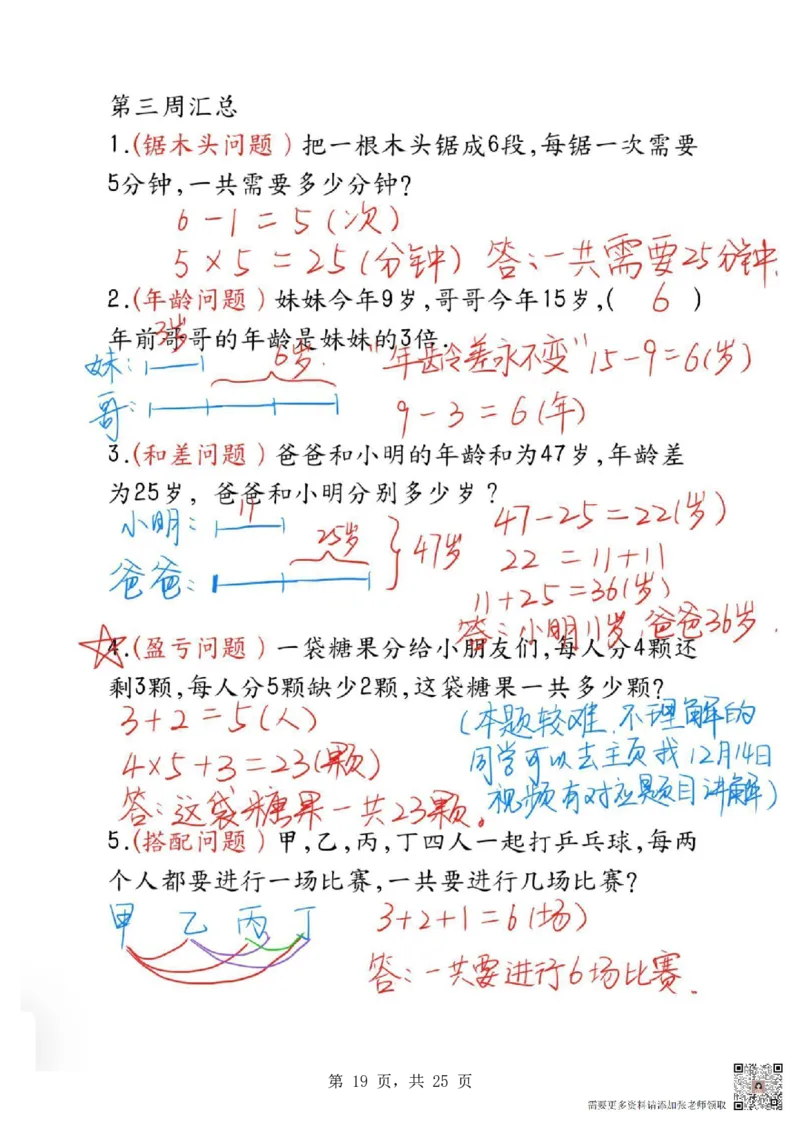 第三周汇总
1.(锯木头问题)把一根木头锯成6段,每锯一次需要
5分钟,一共需要多少分钟?
6-1=5(次)
5×5=25(分钟) 答:一共需要25分钟.
2.(年龄问题)妹妹今年9岁,哥哥今年15岁,( 6 )
年前哥哥的年龄是妹妹的3倍.
3岁
妹: 6岁. “年龄差永不变” 15-9=6(岁)
哥: 9-3=6(年)
3.(和差问题)爸爸和小明的年龄和为47岁,年龄差
为25岁,爸爸和小明分别多少岁?
小明: 11 47-25=22(岁)
25岁 47岁 22=11+11
爸爸: 11+25=36(岁)
答:小明11岁,爸爸36岁.
4.(盈亏问题)一袋糖果分给小朋友们,每人分4颗还
剩3颗,每人分5颗缺少2颗,这袋糖果一共多少颗?
3+2=5(人) (本题较难,不理解的
4×5+3=23(颗) 同学可以去主页找12月14日
答:这袋糖果一共23颗。 视频有对应题目讲解)
5.(搭配问题)甲,乙,丙,丁四人一起打乒乓球,每两
个人都要进行一场比赛,一共要进行几场比赛?
甲 乙 丙 丁 3+2+1=6(场)
答:一共要进行6场比赛.
第 19 页，共 25 页
需要更多资料请添加张老师领取